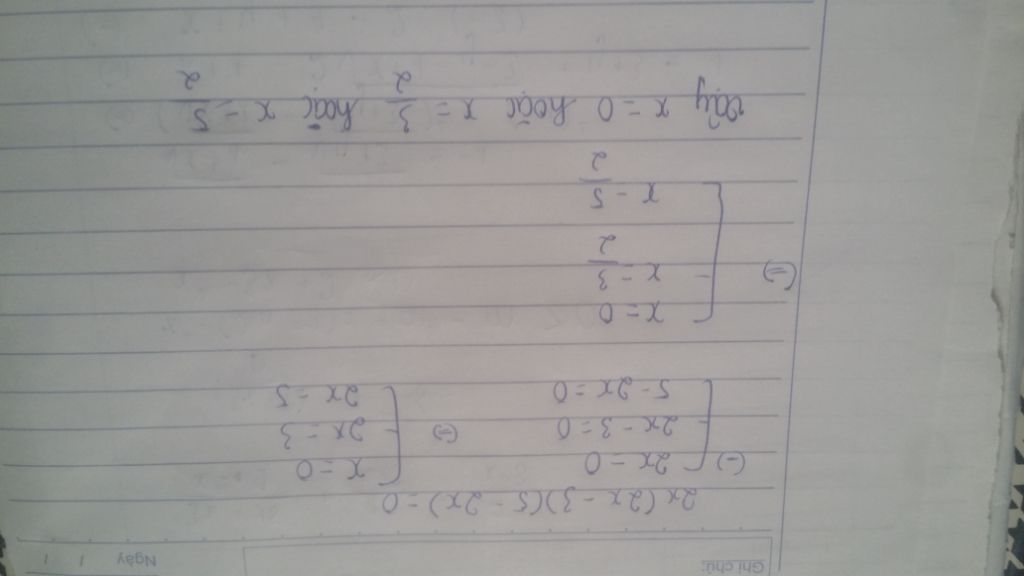 Ghi chú: Ngày / /
2x(2x - 3)(5 - 2x) = 0
(=) [ 2x = 0 [ x = 0
2x - 3 = 0 (=) 2x = 3
5 - 2x = 0 2x = 5
(=) [ x = 0
x = 3/2
x = 5/2
Vậy x = 0 hoặc x = 3/2 hoặc x = 5/2